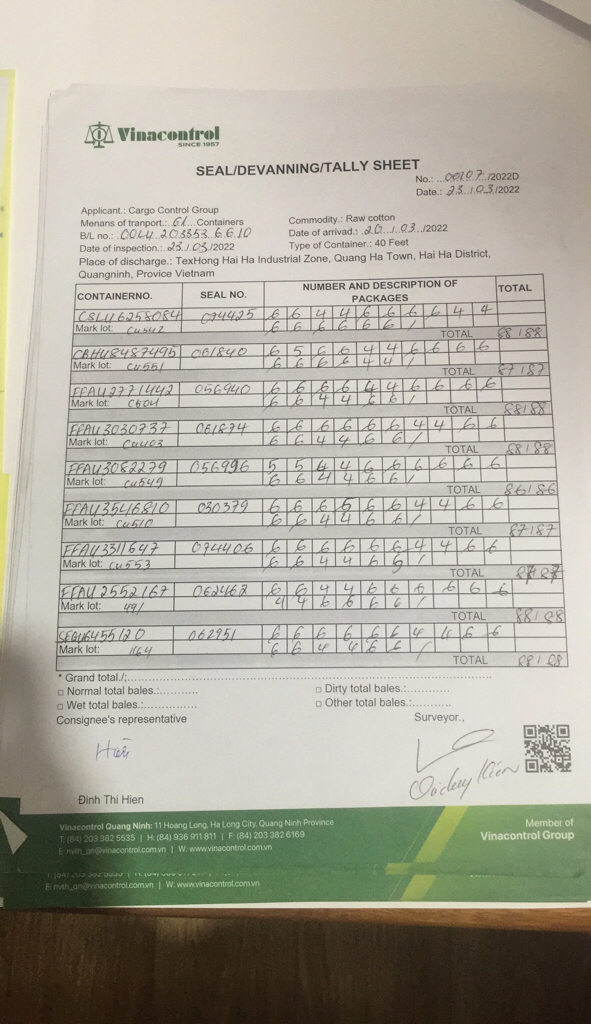 Vinacontrol
SINCE 1957
SEAL/DEVANNING/TALLY SHEET
No.: ...00107./2022D
Date.: 23.1.03./2022
Applicant.: Cargo Control Group
Menans of tranport.: 61... Containers
Commodity.: Raw cotton
B/L no.: COLU 203353 6610
Date of arrivad.: 20./.03./2022
Date of inspection.: 23./.03/2022
Type of Container.: 40 Feet
Place of discharge.: TexHong Hai Ha Industrial Zone, Quang Ha Town, Hai Ha District,
Quangninh, Provice Vietnam
CONTAINERNO. SEAL NO. NUMBER AND DESCRIPTION OF PACKAGES TOTAL
CSLU6258084 074425 6 6 4 4 6 6 6 6 4 4
Mark lot: CU542 6 6 6 6 6 6 /
TOTAL 88/88
061840 6 5 6 6 4 4 6 6 6 6
Mark lot: CU551 6 6 6 6 4 4 /
TOTAL 87/87
FFAU2771442 056940 6 6 6 6 4 4 6 6 6 6
Mark lot: 6 6 4 4 6 6 /
TOTAL 88/88
FFAU3030737 061874 6 6 6 6 6 6 4 4 6 6
Mark lot: 6 6 4 4 6 6 /
TOTAL 88/88
FFAU3082279 056996 5 5 4 4 6 6 6 6 6 6
Mark lot: CU549 6 6 4 4 6 6 /
TOTAL 86/86
FFAU3546810 030379 6 6 6 5 6 6 4 4 6 6
Mark lot: CU510 6 6 4 4 6 6 /
TOTAL 87/87
FFAU3311647 074406 6 6 6 6 6 6 4 4 6 6
Mark lot: CU553 6 6 4 4 6 5 /
TOTAL 87/87
FFAU2552167 062462 6 6 4 4 6 6 6 6 6 6
Mark lot: 491 4 4 6 6 6 6 /
TOTAL 88/88
SEGU6455120 062951 6 6 6 6 6 6 4 4 6 6
Mark lot: 1164 6 6 4 4 6 6 /
TOTAL 88/88
* Grand total./:
□ Normal total bales.:...........
□ Dirty total bales.:............
□ Wet total bales.:...............
□ Other total bales.:............
Consignee's representative
Surveyor.,
Hiền
Đinh Thi Hien
Vinacontrol Quang Ninh: 11 Hoang Long, Ha Long City, Quang Ninh Province
T: (84) 203 382 5535 | H: (84) 936 911 811 | F: (84) 203 382 6169
E: nvth_qn@vinacontrol.com.vn | W. www.vinacontrol.com.vn
Member of
Vinacontrol Group
E: nvth_qn@vinacontrol.com.vn | W. www.vinacontrol.com.vn